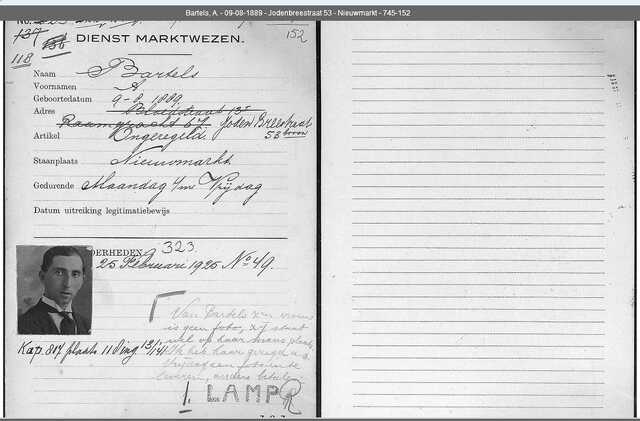 Bartels, A. - 09-08-1889 - Jodenbreestraat 53 - Nieuwmarkt - 745-152
No.
152
137
136
118
DIENST MARKTWEZEN.
Naam Bartels
Voornamen A.
Geboortedatum 9-8-1889
Adres Bloemstraat 13
Raamgracht 67 Joden Breestraat
53 boven
Artikel Ongeregeld.
Staanplaats Nieuwmarkt
Gedurende Maandag t/m Vrijdag
Datum uitreiking legitimatiebewijs
DERHEDEN 323.
25 Februari 1925 No 49.
Van Bartels z'n vrouw
is geen foto, zij staat
wel op haar mans plaats
Ik heb haar gezegd a.s.
Vrijdag een foto in te
leveren, anders
Kap. 807 plaats 11 Ding 13/1 41
1. LAMP